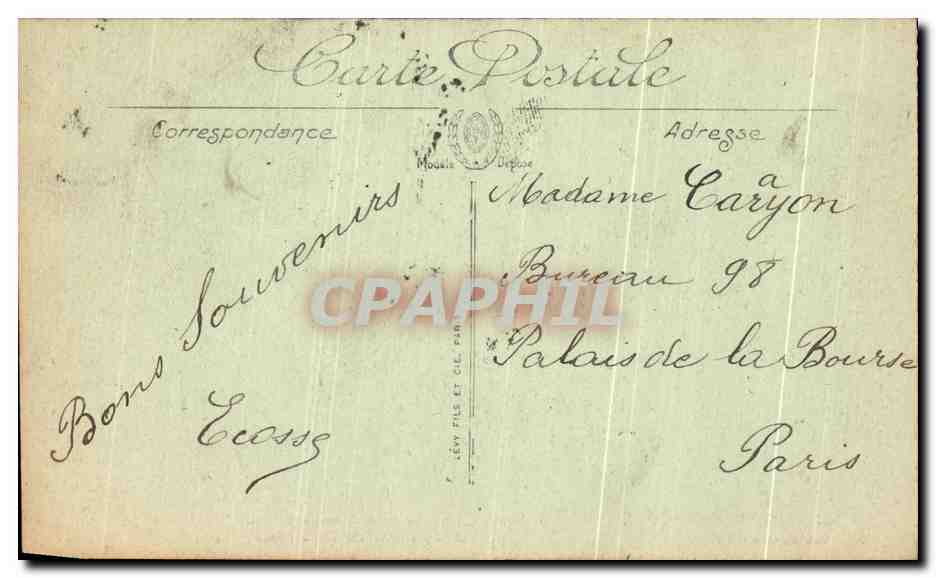 Carte Postale
Correspondance
Adresse
Modèle Déposé
Bons Souvenirs
Ecosse
LÉVY FILS ET CIE, PARIS
Madame Carayon
Bureau 98
Palais de la Bourse
Paris
CPAPHIL